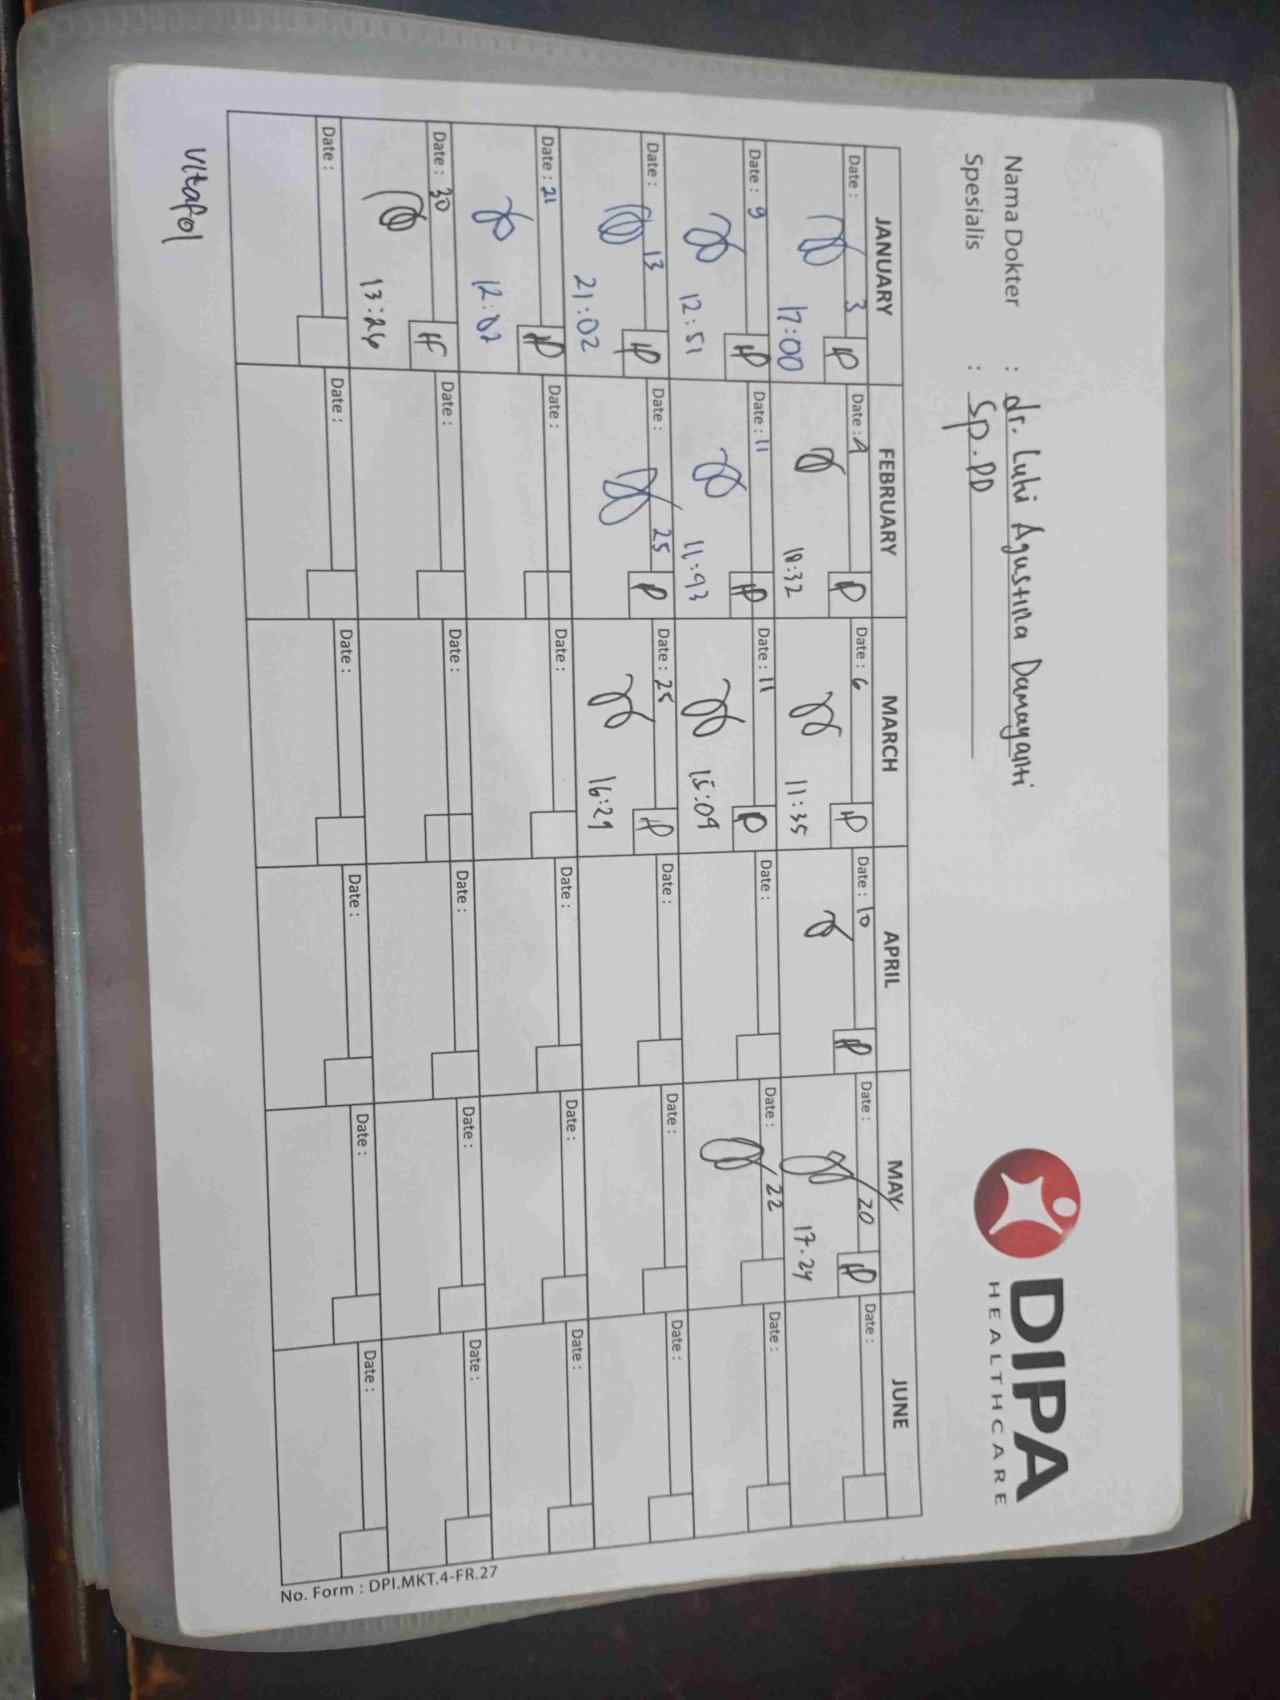 DIPA
HEALTHCARE
Nama Dokter : dr. Luhi Agustina Damayanti
Spesialis : Sp.PD
JANUARY FEBRUARY MARCH APRIL MAY JUNE
Date: 3 Date: Date: 6 Date: 10 Date: 20 Date:
17:00 18:32 11:35 17.24
Date: 9 Date: 11 Date: 11 Date: Date: 22 Date:
12:51 11:43 15:09
Date: 13 Date: 25 Date: 25 Date: Date: Date:
21:02 16:29
Date: 21 Date: Date: Date: Date: Date:
12:02
Date: 30 Date: Date: Date: Date: Date:
13:26
Date: Date: Date: Date: Date: Date:
Vitafol
No. Form : DPI.MKT.4-FR.27